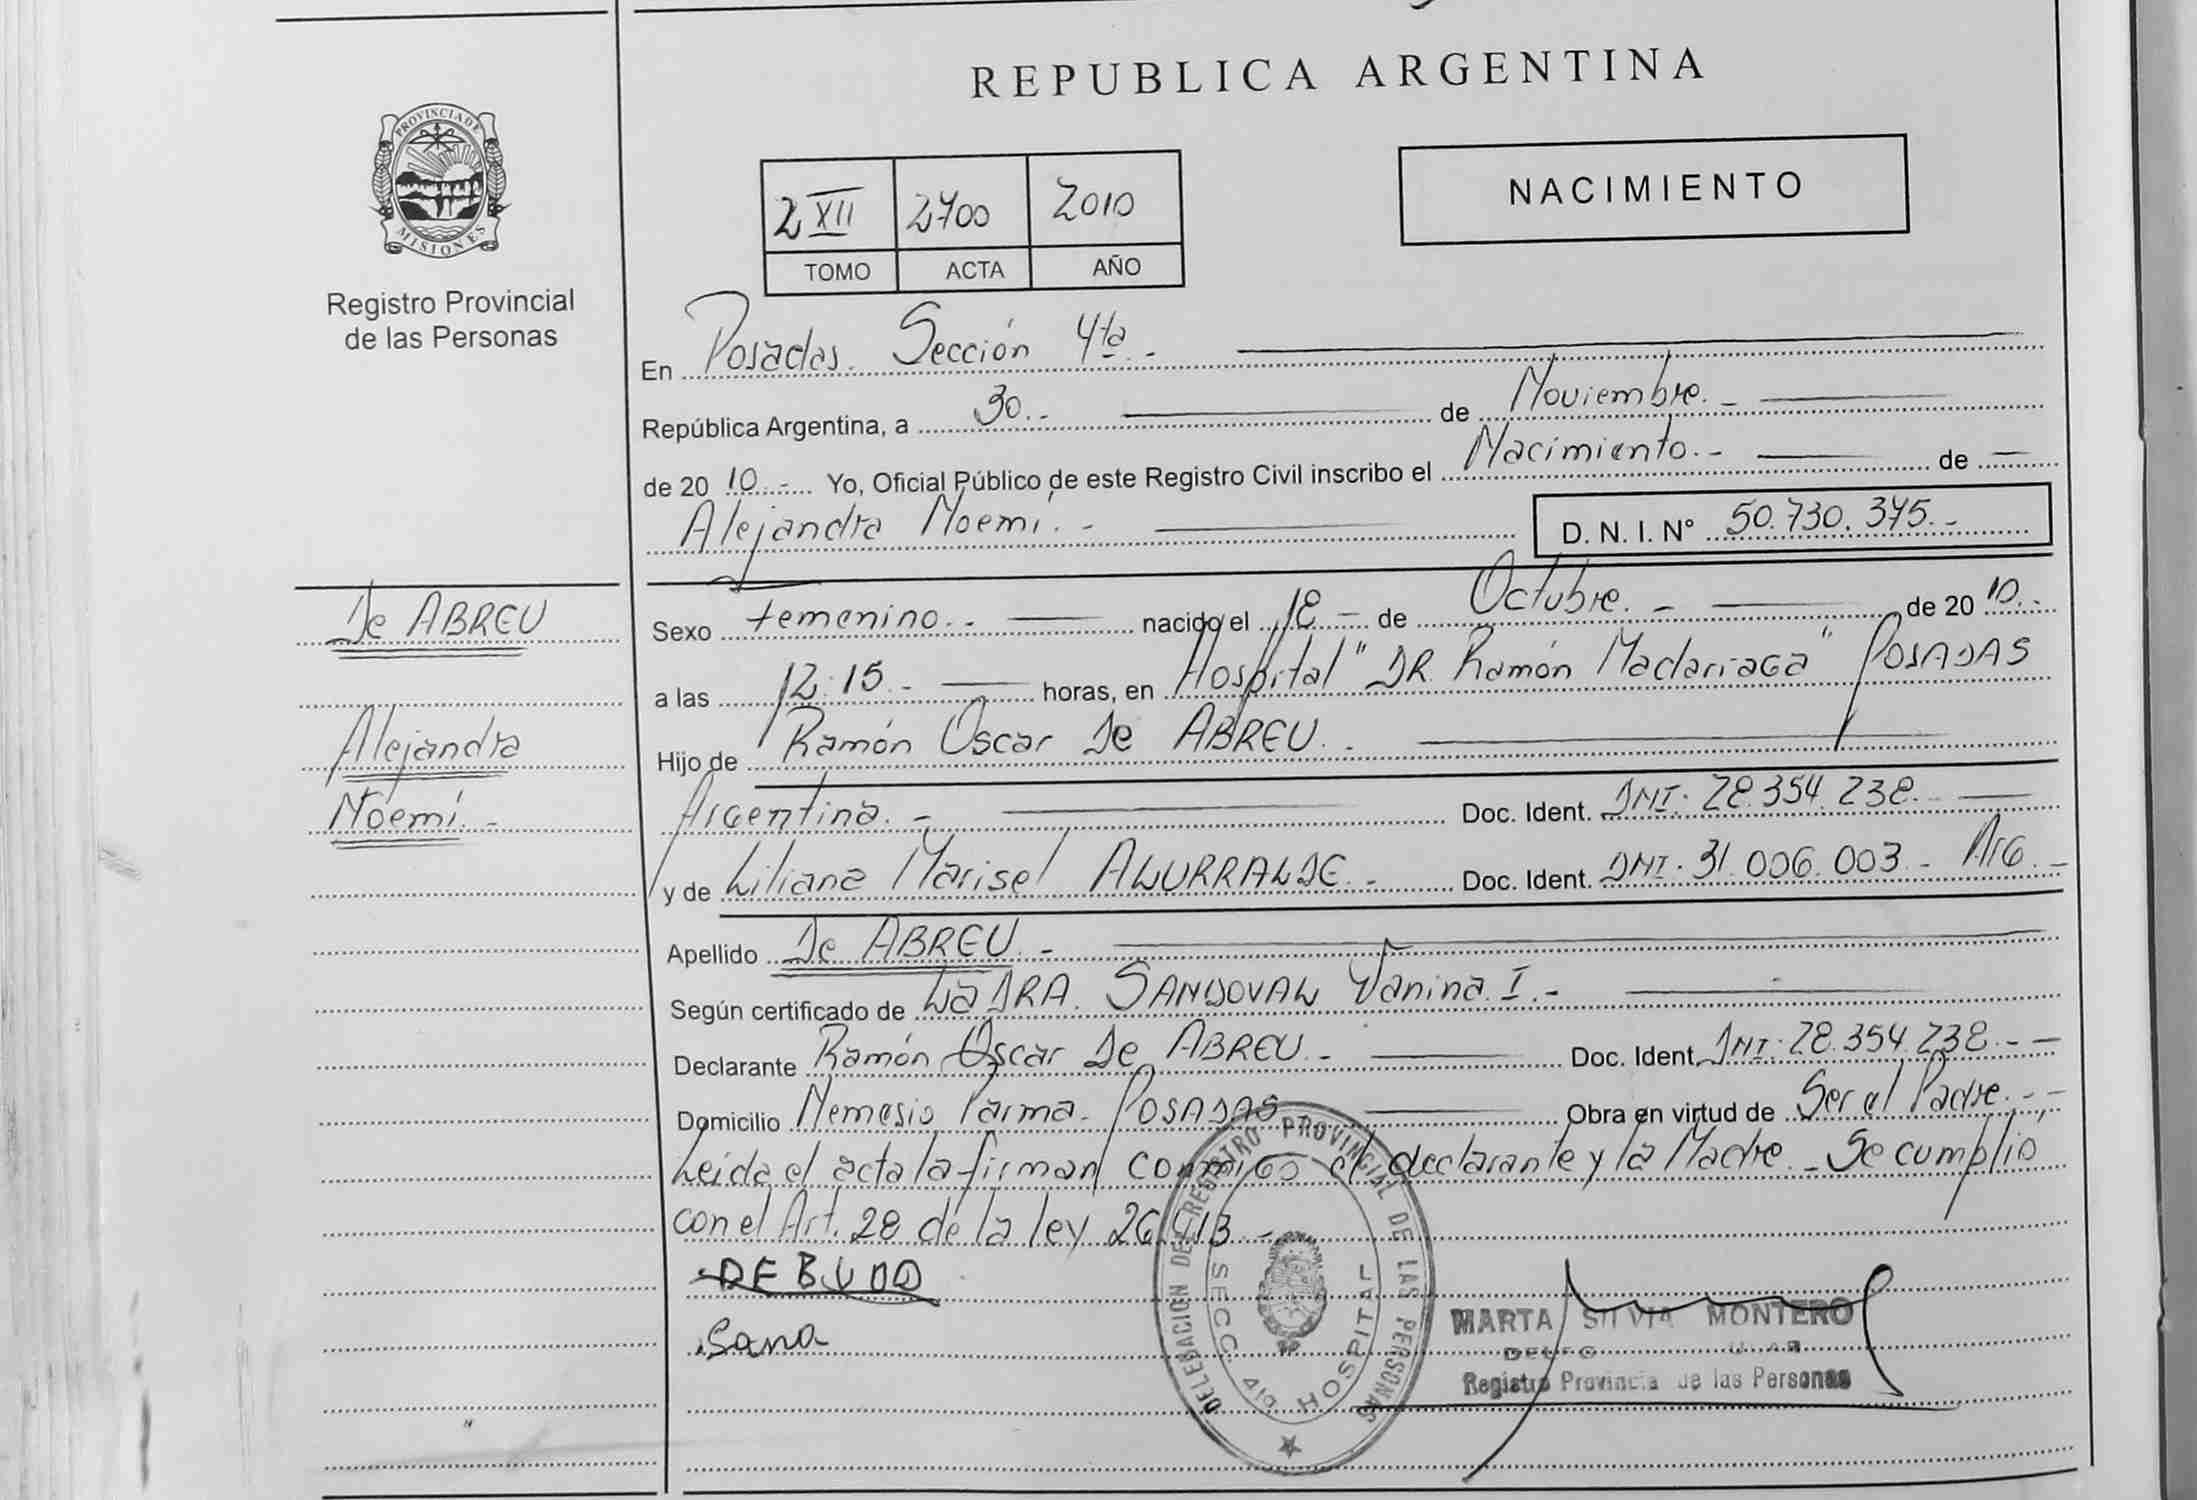 REPUBLICA ARGENTINA
PROVINCIA DE MISIONES
Registro Provincial
de las Personas
NACIMIENTO
2 XII 2400 2010
TOMO ACTA AÑO
En Posadas. Sección 4ta.-
República Argentina, a 30.- de Noviembre.-
de 20 10.- Yo, Oficial Público de este Registro Civil inscribo el Nacimiento.- de
Alejandra Noemí.- D. N. I. N° 50.730.375.-
De ABREU
Alejandra
Noemí.-
Sexo femenino.- nacido el 18 - de Octubre.- de 20 10.-
a las 12:15.- horas, en Hospital "DR. Ramón Madariaga" POSADAS
Hijo de Ramón Oscar De ABREU.-
Argentina.- Doc. Ident. DNI. 28.354.238.-
y de Liliana Marisel ALURRALDE.- Doc. Ident. DNI. 31.006.003.- Arg.-
Apellido De ABREU.-
Según certificado de La DRA. SANDOVAL Vanina I.-
Declarante Ramón Oscar De ABREU.- Doc. Ident. DNI. 28.354.238.-
Domicilio Nemesio Parma. POSADAS Obra en virtud de Ser el Padre.-
Leida el acta la firman conmigo el declarante y la Madre.- Se cumplio
con el Art. 28 de la ley 26.413.-
DELEGACION DEL REGISTRO PROVINCIAL DE LAS PERSONAS
SECC. 4ta HOSPITAL
MARTA SILVIA MONTERO
Registro Provincial de las Personas